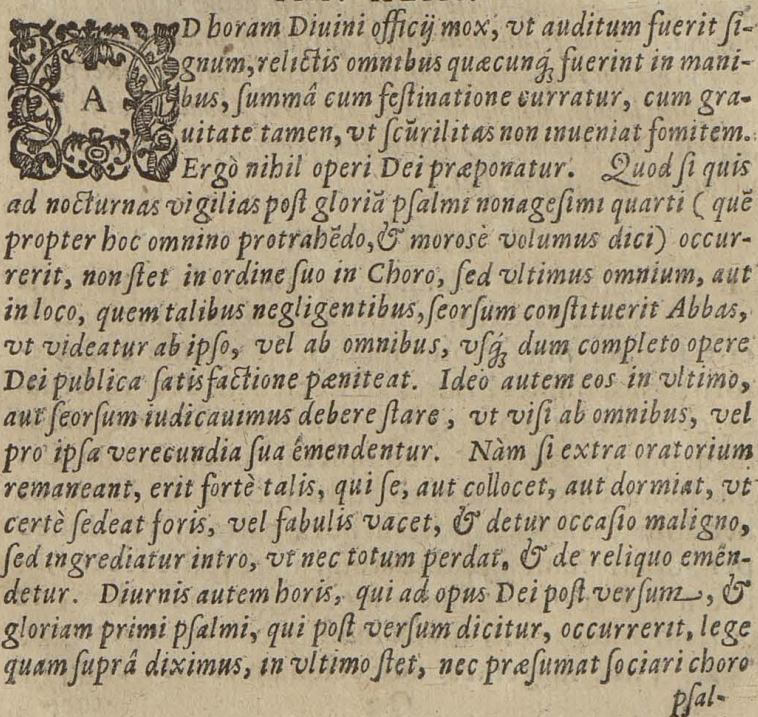 AD horam Diuini officij mox, vt auditum fuerit ſi-
gnum, relictis omnibus quæcunq́ꝫ fuerint in mani-
bus, ſummâ cum feſtinatione curratur, cum gra-
uitate tamen, vt ſcŭrilitas non inueniat fomitem.
Ergò nihil operi Dei præponatur. Quod ſi quis
ad nocturnas vigilias poſt gloriā pſalmi nonageſimi quarti ( quē
propter hoc omnino protrahēdo, & morosè volumus dici) occur-
rerit, non ſtet in ordine ſuo in Choro, ſed vltimus omnium, aut
in loco, quem talibus negligentibus, ſeorſum conſtituerit Abbas,
vt videatur ab ipſo, vel ab omnibus, vſq́ꝫ dum completo opere
Dei publica ſatisfactione pæniteat. Ideò autem eos in vltimo,
aut ſeorſum iudicauimus debere ſtare, vt viſi ab omnibus, vel
pro ipſa verecundia ſua êmendentur. Nàm ſi extra oratorium
remaneant, erit fortè talis, qui ſe, aut collocet, aut dormiat, vt
certè ſedeat foris, vel fabulis vacet, & detur occaſio maligno,
ſed ingrediatur intro, vt nec totum perdat, & de reliquo emēn-
detur. Diurnis autem horis, qui ad opus Dei poſt verſum, &
gloriam primi pſalmi, qui poſt verſum dicitur, occurrerit, lege
quam ſuprâ diximus, in vltimo ſtet, nec præſumat ſociari choro
pſal-